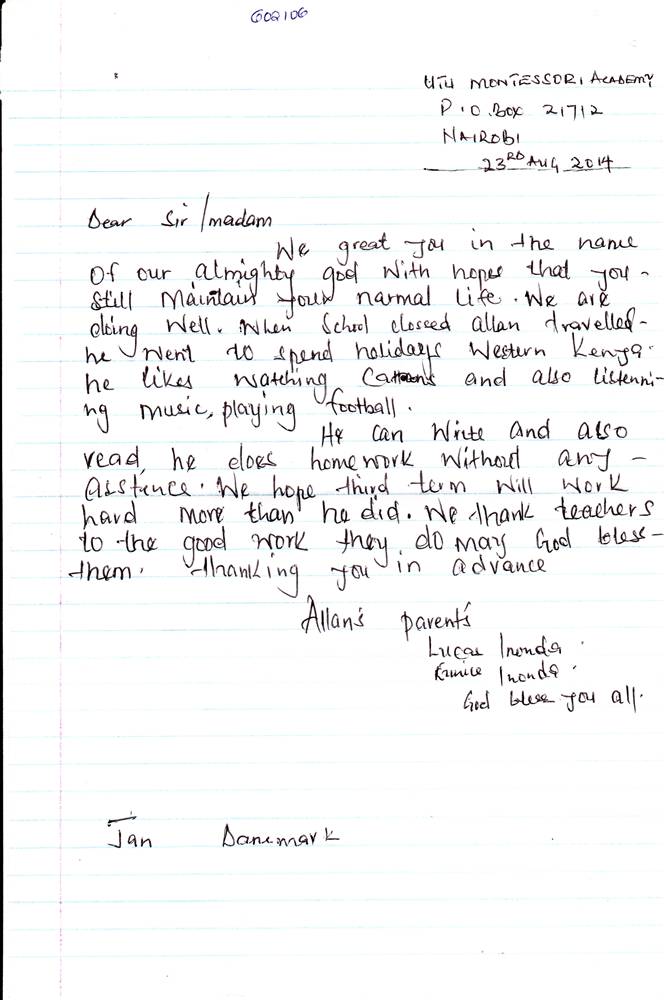 G02106
UTU MONTESSORI ACADEMY
P.O.Box 21712
NAIROBI
23RD AUG 2014
Dear Sir/madam
We great you in the name
Of our almighty god with hopes that you-
Still Maintain your narmal life. We are
doing well. When School clossed allan travelled-
he went to spend holidays Western Kenya.
he likes watching Catoons and also listenni-
ng music, playing football.
He can write and also
read, he does homework without any-
asstance. We hope third term will work
hard more than he did. We thank teachers
to the good work they do may God bless-
them. thanking you in advance
Allan's parent's
Lucas Inonda.
Eunice Inonda.
God bless you all.
Jan Danemark